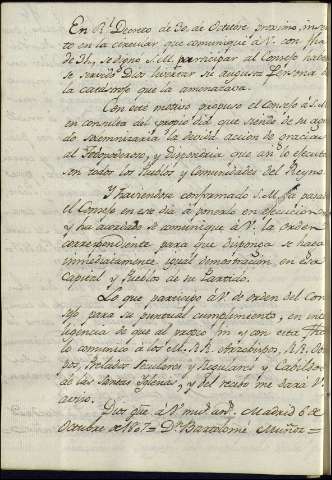 En Rl. Decreto de 30 de Octubre proximo, inser-
to en la circular que comuniqué á V. con fha
de 31, se digno S.M. participar al Consejo haber-
se servido Dios livertar su augusta Persona de
la catastrofe que la amenazaba.
Con este motivo propuso el Consejo á S.M.
en consulta del propio dia que siendo de su agra-
do solemnizaria la devida accion de gracias
al Todopoderoso, y dispondria que asi lo ejecuta-
sen todos los Pueblos y Comunidades del Reyno.
Y haviendose conformado S.M. ha pasado
el Consejo en este dia á ponerlo en ejecucion
y ha acordado se comunique á V. la orden
correspondiente para que disponga se haga
inmediatamente igual demostracion en esa
Capital y Pueblos de su Partido.
Lo que participo á V. de orden del Con-
sejo para su puntual cumplimiento, en inte-
ligencia de que al efecto y con esta fha
lo comunico á los M. RR. Arzobispos, RR. Obis-
pos, Prelados Seculares y Regulares y Cabildos
de las Santas Iglesias, y del recibo me dará V.
aviso.
Dios gue. á V. ms. as. Madrid 6 de
Octubre de 1807= Dn. Bartolomé Muñoz=